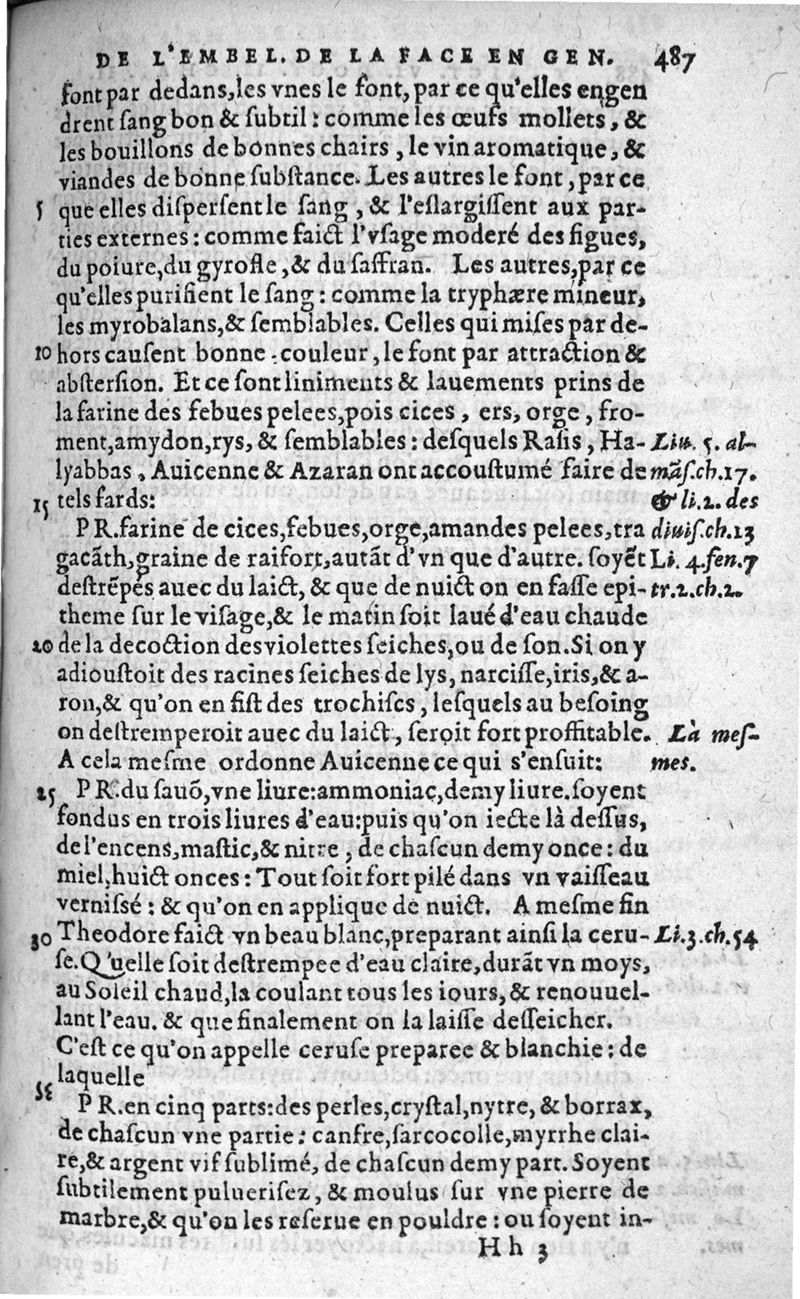 DE L'EMBEL. DE LA FACE EN GEN. 487
ſont par dedans, les vnes le font, par ce qu'elles engen
drent ſang bon & ſubtil : comme les œufs mollets, &
les bouillons de bonnes chairs, le vin aromatique, &
viandes de bonne ſubſtance. Les autres le font, par ce
5 que elles diſperſent le ſang, & l'eslargiſſent aux par-
ties externes : comme faict l'vſage moderé des figues,
du poiure, du gyrofle, & du ſaffran. Les autres, par ce
qu'elles purifient le ſang : comme la tryphære mineur,
les myrobalans, & ſemblables. Celles qui miſes par de-
10 hors cauſent bonne couleur, le font par attraction &
abſterſion. Et ce ſont liniments & lauements prins de
la farine des febues pelees, pois cices, ers, orge, fro-
ment, amydon, rys, & ſemblables : deſquels Raſis, Ha- Liu. 5. al-
lyabbas, Auicenne & Azaran ont accouſtumé faire de mãſ. ch. 17.
15 tels fards: & li. 2. des
PR. farine de cices, febues, orge, amandes pelees, tra diuiſ. ch. 13
gacãth, graine de raifort, autãt d'vn que d'autre. ſoyẽt Li. 4. fen. 7
deſtrẽpés auec du laict, & que de nuict on en faſſe epi- tr. 2. ch. 2.
theme ſur le viſage, & le matin ſoit laué d'eau chaude
20 de la decoction des violettes ſeiches, ou de ſon. Si on y
adiouſtoit des racines ſeiches de lys, narciſſe, iris, & a-
ron, & qu'on en fiſt des trochiſcs, leſquels au beſoing
on deſtremperoit auec du laict, ſeroit fort proffitable. Là meſ-
A cela meſme ordonne Auicenne ce qui s'enſuit: mes.
25 PR. du sauõ, vne liure: ammoniac, demy liure. ſoyent
fondus en trois liures d'eau: puis qu'on iecte là deſſus,
de l'encens, maſtic, & nitre, de chaſcun demy once : du
miel, huict onces : Tout ſoit fort pilé dans vn vaiſſeau
verniſſé : & qu'on en applique de nuict. A meſme fin
30 Theodore faict vn beau blanc, preparant ainſi la ceru- Li. 3. ch. 54
ſe. Qu'elle ſoit deſtrempee d'eau claire, durãt vn moys,
au Soleil chaud, la coulant tous les iours, & renouuel-
lant l'eau. & que finalement on la laiſſe deſſeicher.
C'eſt ce qu'on appelle ceruſe preparee & blanchie : de
35 laquelle
PR. en cinq parts: des perles, cryſtal, nytre, & borrax,
de chaſcun vne partie : canfre, ſarcocolle, myrrhe clai-
re, & argent vif ſublimé, de chaſcun demy part. Soyent
ſubtilement pulueriſez, & moulus ſur vne pierre de
marbre, & qu'on les reſerue en pouldre : ou ſoyent in-
Hh 3